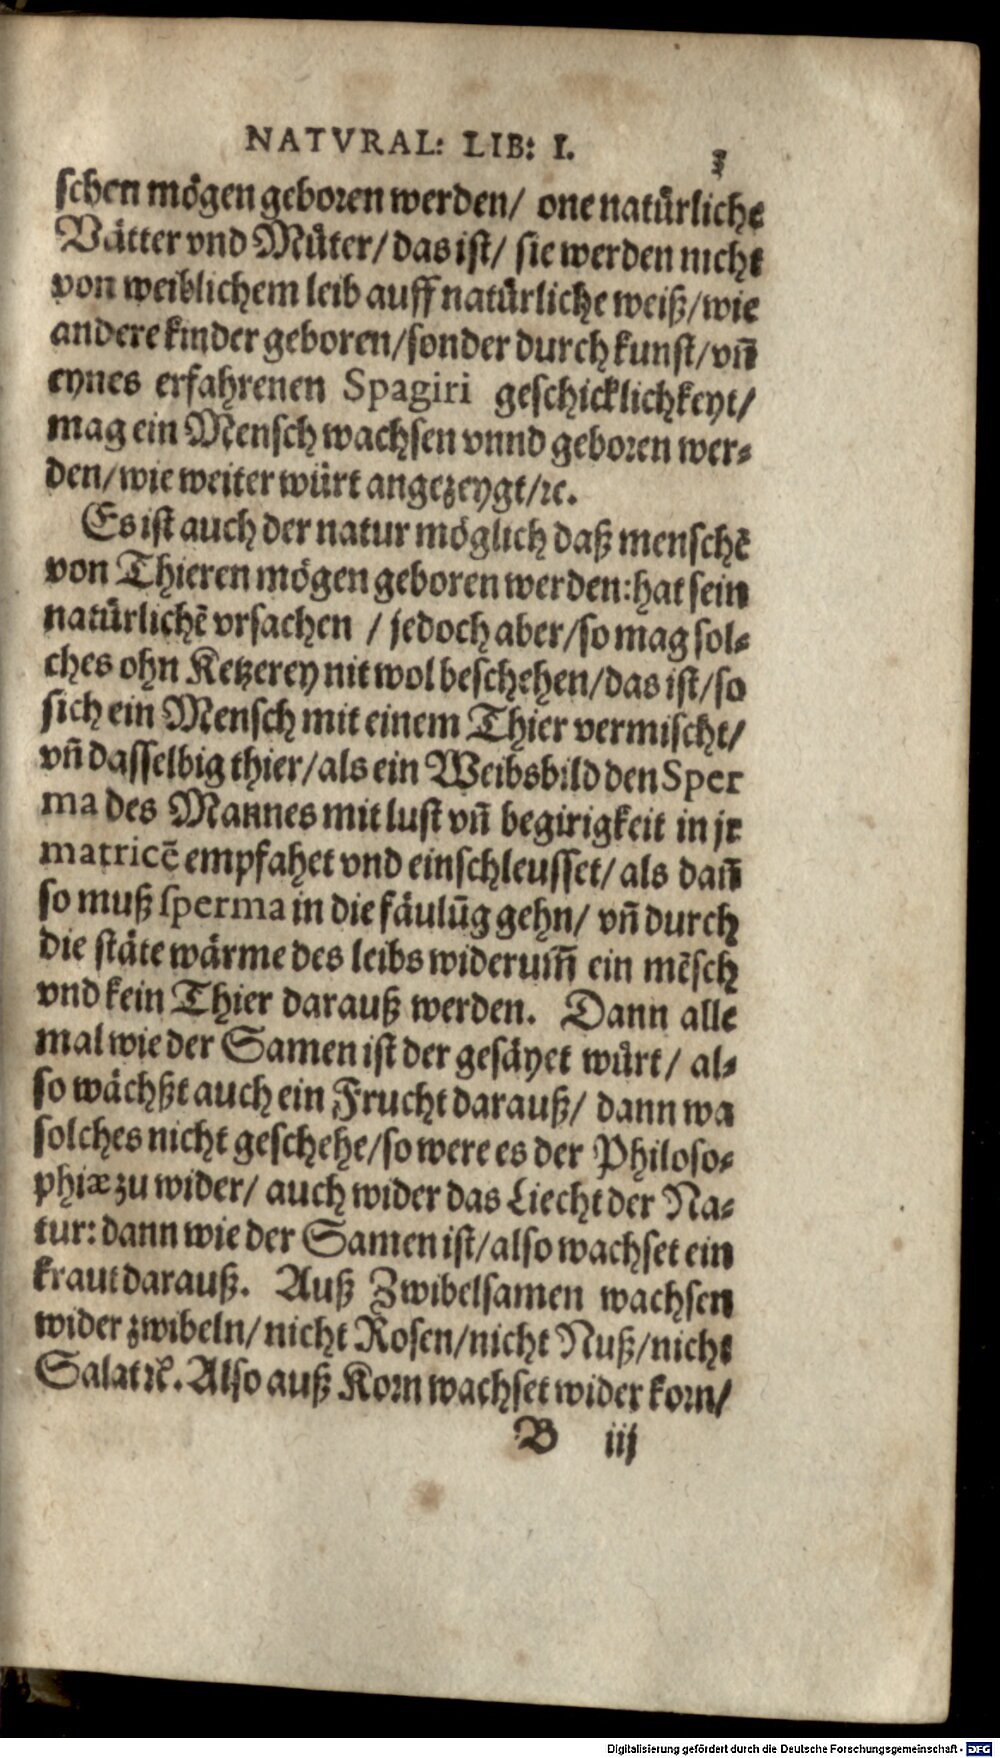 NATVRAL: LIB: I. 3
schen mögen geboren werden/ one natürliche
Vätter vnd Můter/ das ist/ sie werden nicht
von weiblichem leib auff natürliche weiß/ wie
andere kinder geboren/ sonder durch kunst/ vñ
eynes erfahrenen Spagiri geschicklichkeyt/
mag ein Mensch wachsen vnnd geboren wer⸗
den/ wie weiter würt angezeygt/ ꝛc.
Es ist auch der natur möglich daß menschẽ
von Thieren mögen geboren werden: hat sein
natürlichẽ vrsachen / jedoch aber/ so mag sol⸗
ches ohn Ketzerey nit wol beschehen/ das ist/ so
sich ein Mensch mit einem Thier vermischt/
vñ dasselbig thier/ als ein Weibsbild den Sper
ma des Mannes mit lust vñ begirigkeit in jr
matricẽ empfahet vnd einschleusset/ als dañ
so muß sperma in die fäulũg gehn/ vñ durch
die stäte wärme des leibs widerum̃ ein mẽsch
vnd kein Thier darauß werden. Dann alle
mal wie der Samen ist der gesäyet würt/ al⸗
so wächßt auch ein Frucht darauß/ dann wa
solches nicht geschehe/ so were es der Philoso⸗
phiæ zu wider/ auch wider das Liecht der Na⸗
tur: dann wie der Samen ist/ also wachset ein
kraut darauß. Auß Zwibelsamen wachsen
wider zwibeln/ nicht Rosen/ nicht Nuß/ nicht
Salat ꝛc. Also auß Korn wachset wider korn/
B iij
Digitalisierung gefördert durch die Deutsche Forschungsgemeinschaft - DFG